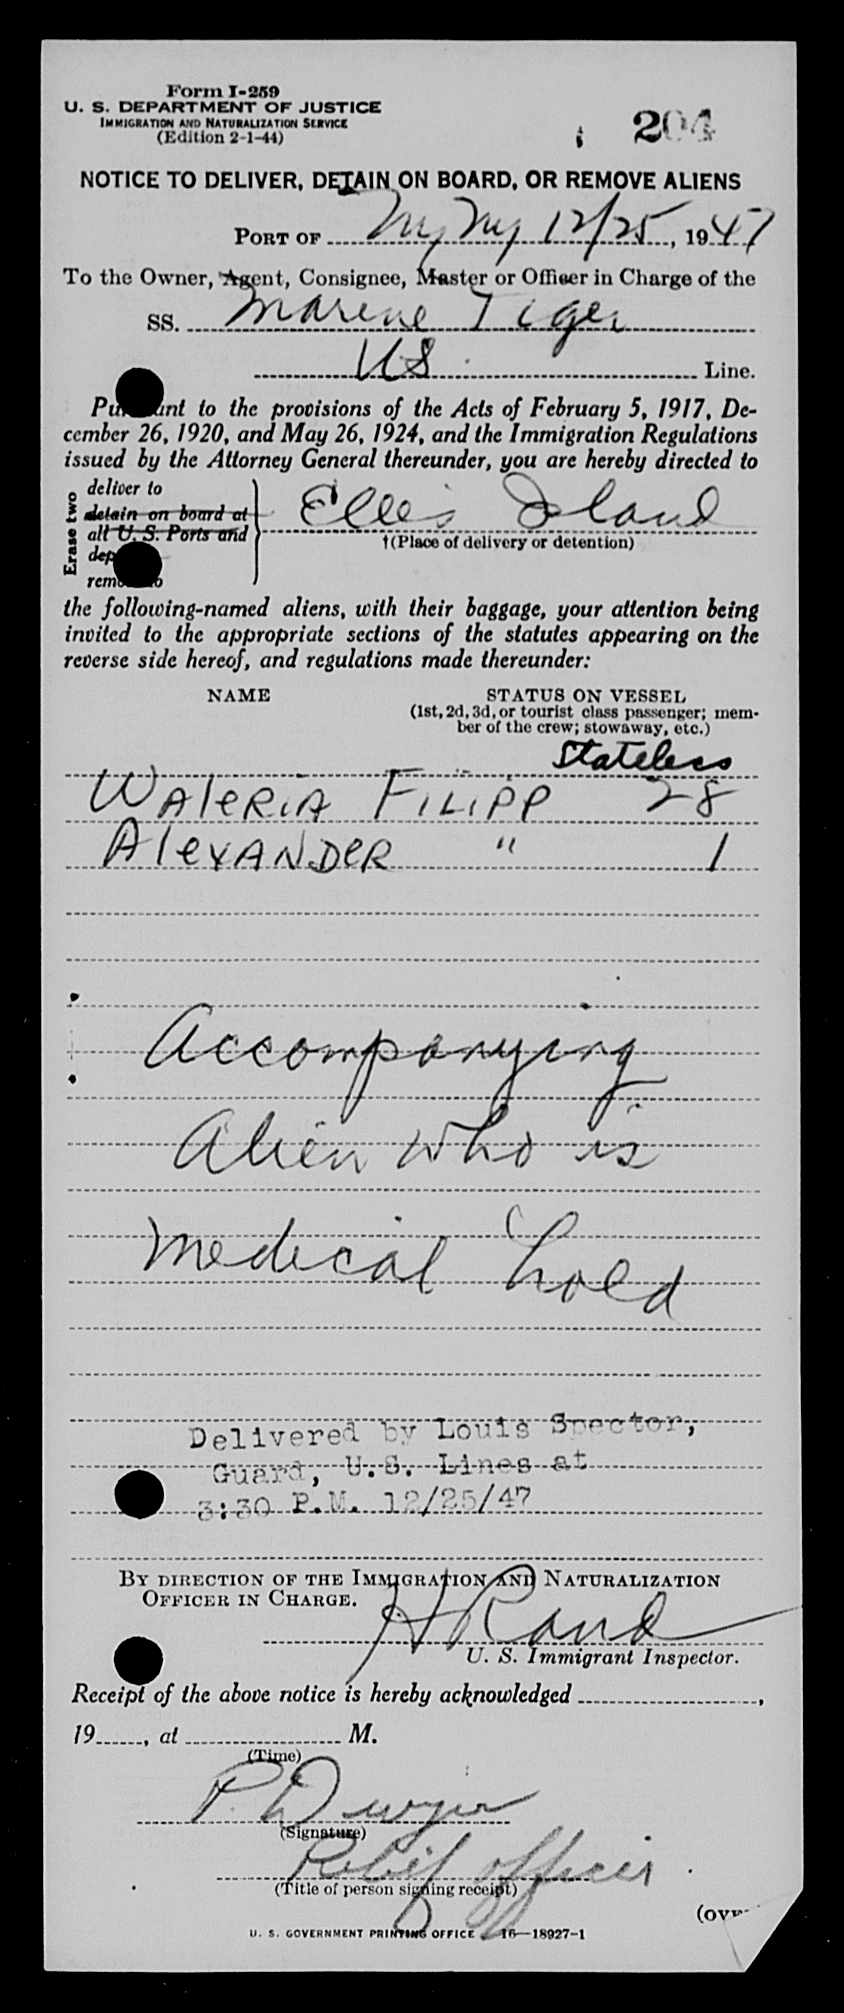 Form I-259
U. S. DEPARTMENT OF JUSTICE
IMMIGRATION AND NATURALIZATION SERVICE
(Edition 2-1-44)
204
NOTICE TO DELIVER, DETAIN ON BOARD, OR REMOVE ALIENS
PORT OF Ny, Ny 12/25, 1947
To the Owner, Agent, Consignee, Master or Officer in Charge of the
SS. Marine Tiger
US. Line.
Pursuant to the provisions of the Acts of February 5, 1917, De-
cember 26, 1920, and May 26, 1924, and the Immigration Regulations
issued by the Attorney General thereunder, you are hereby directed to
Erase two
deliver to
detain on board at
all U. S. Ports and
dep
remove to
Ellis Island
†(Place of delivery or detention)
the following-named aliens, with their baggage, your attention being
invited to the appropriate sections of the statutes appearing on the
reverse side hereof, and regulations made thereunder:
NAME STATUS ON VESSEL
(1st, 2d, 3d, or tourist class passenger; mem-
ber of the crew; stowaway, etc.)
Stateless
WAleRiA FiLiPP 28
AlexANDeR " 1
Accompanying
Alien who is
Medical hold
Delivered by Louis Spector,
Guard, U.S. Lines at
3:30 P.M. 12/25/47
BY DIRECTION OF THE IMMIGRATION AND NATURALIZATION
OFFICER IN CHARGE.
H Rand
U. S. Immigrant Inspector.
Receipt of the above notice is hereby acknowledged ,
19 , at M.
(Time)
P. Dwyer
(Signature)
Relief officer
(Title of person signing receipt)
(OVE
U. S. GOVERNMENT PRINTING OFFICE 16—18927-1